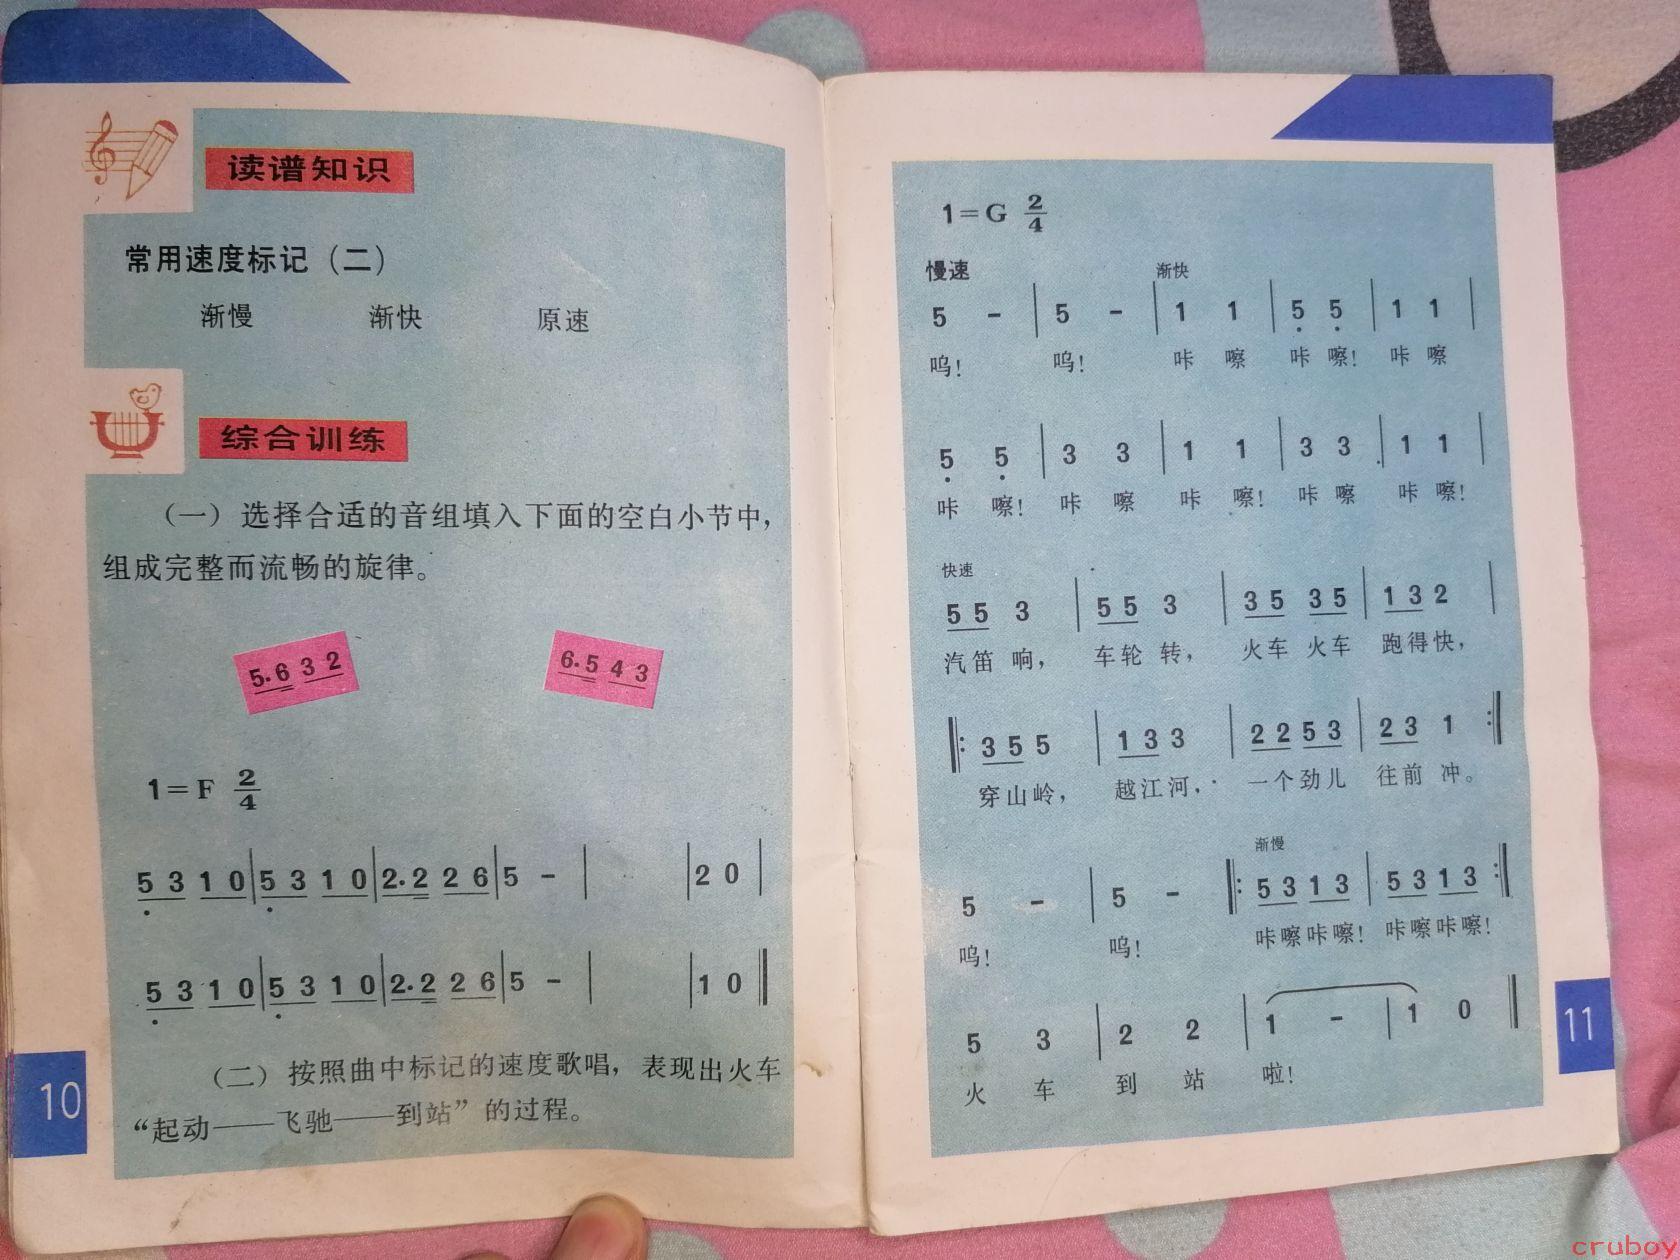 读谱知识
常用速度标记（二）
渐慢 渐快 原速
综合训练
（一）选择合适的音组填入下面的空白小节中，
组成完整而流畅的旋律。
5·6 3 2 6·5 4 3
1=F 2/4
5 3 1 0 | 5 3 1 0 | 2·2 2 6 | 5 － | | 2 0 |
5 3 1 0 | 5 3 1 0 | 2·2 2 6 | 5 － | | 1 0 ‖
（二）按照曲中标记的速度歌唱，表现出火车
“起动——飞驰——到站”的过程。
10
1=G 2/4
慢速 渐快
5 － | 5 － | 1 1 | 5 5 | 1 1 |
呜！ 呜！ 咔 嚓 咔 嚓！ 咔 嚓
5 5 | 3 3 | 1 1 | 3 3 | 1 1 |
咔 嚓！ 咔 嚓 咔 嚓！ 咔 嚓 咔 嚓！
快速
5 5 3 | 5 5 3 | 3 5 3 5 | 1 3 2 |
汽笛 响， 车轮 转， 火车 火车 跑得快，
‖: 3 5 5 | 1 3 3 | 2 2 5 3 | 2 3 1 :‖
穿山岭， 越江河， 一个劲儿 往前 冲。
渐慢
5 － | 5 － ‖: 5 3 1 3 | 5 3 1 3 :‖
呜！ 呜！ 咔嚓咔嚓！ 咔嚓咔嚓！
5 3 | 2 2 | 1 － | 1 0 ‖
火 车 到 站 啦！
11
cruboy